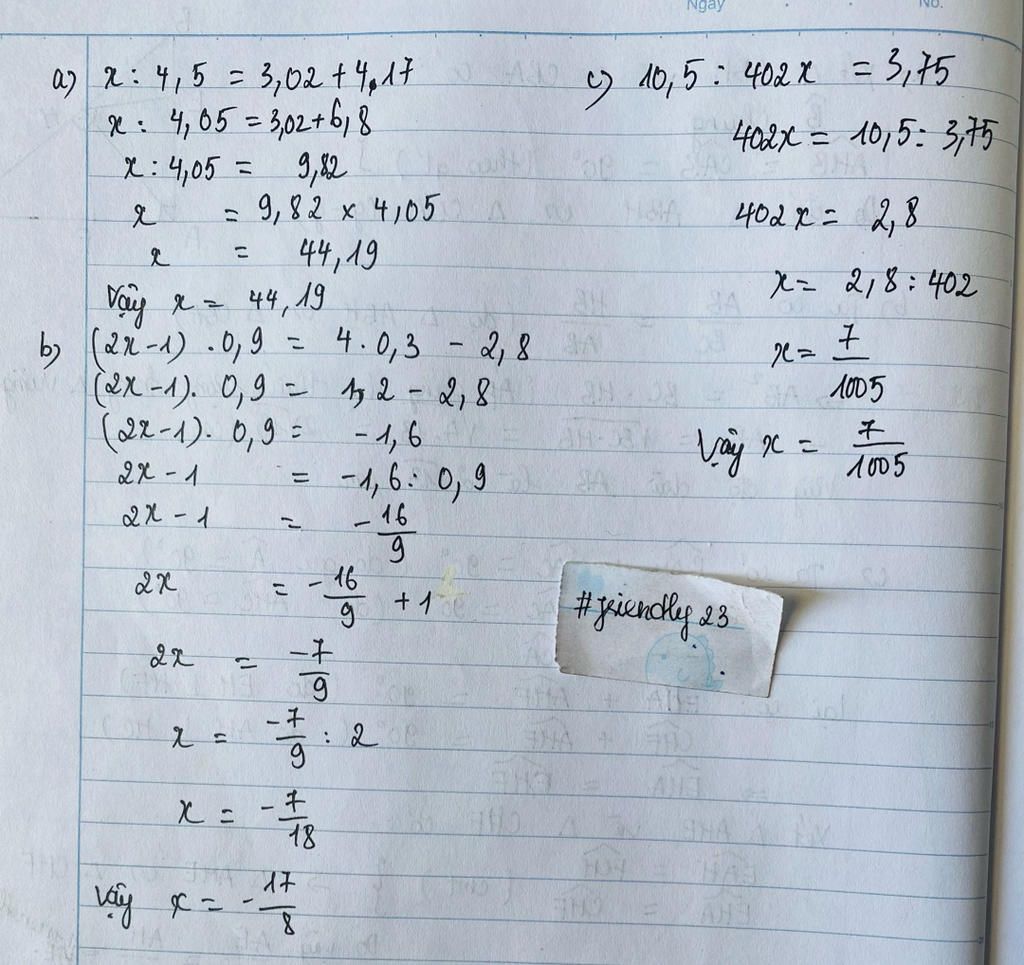 Ngày
No.
a) x : 4,5 = 3,02 + 4,17
x : 4,05 = 3,02 + 6,8
x : 4,05 = 9,82
x = 9,82 x 4,05
x = 44,19
Vậy x = 44,19
b) (2x-1) . 0,9 = 4 . 0,3 - 2,8
(2x-1) . 0,9 = 1,2 - 2,8
(2x-1) . 0,9 = -1,6
2x - 1 = -1,6 : 0,9
2x - 1 = -16/9
2x = -16/9 + 1
2x = -7/9
x = -7/9 : 2
x = -7/18
Vậy x = -17/8
c) 10,5 : 402x = 3,75
402x = 10,5 : 3,75
402x = 2,8
x = 2,8 : 402
x = 7/1005
Vậy x = 7/1005
#friendly 23